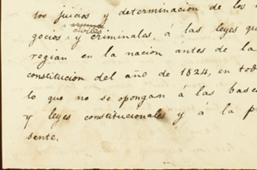 los juicios y determinacion de los
civiles
gocios y criminales, á las leyes que
regian en la nacion antes de la
constitucion del año de 1824, en tod
lo que no se opongan á las bases
y leyes constitucionales y á la p
sente.